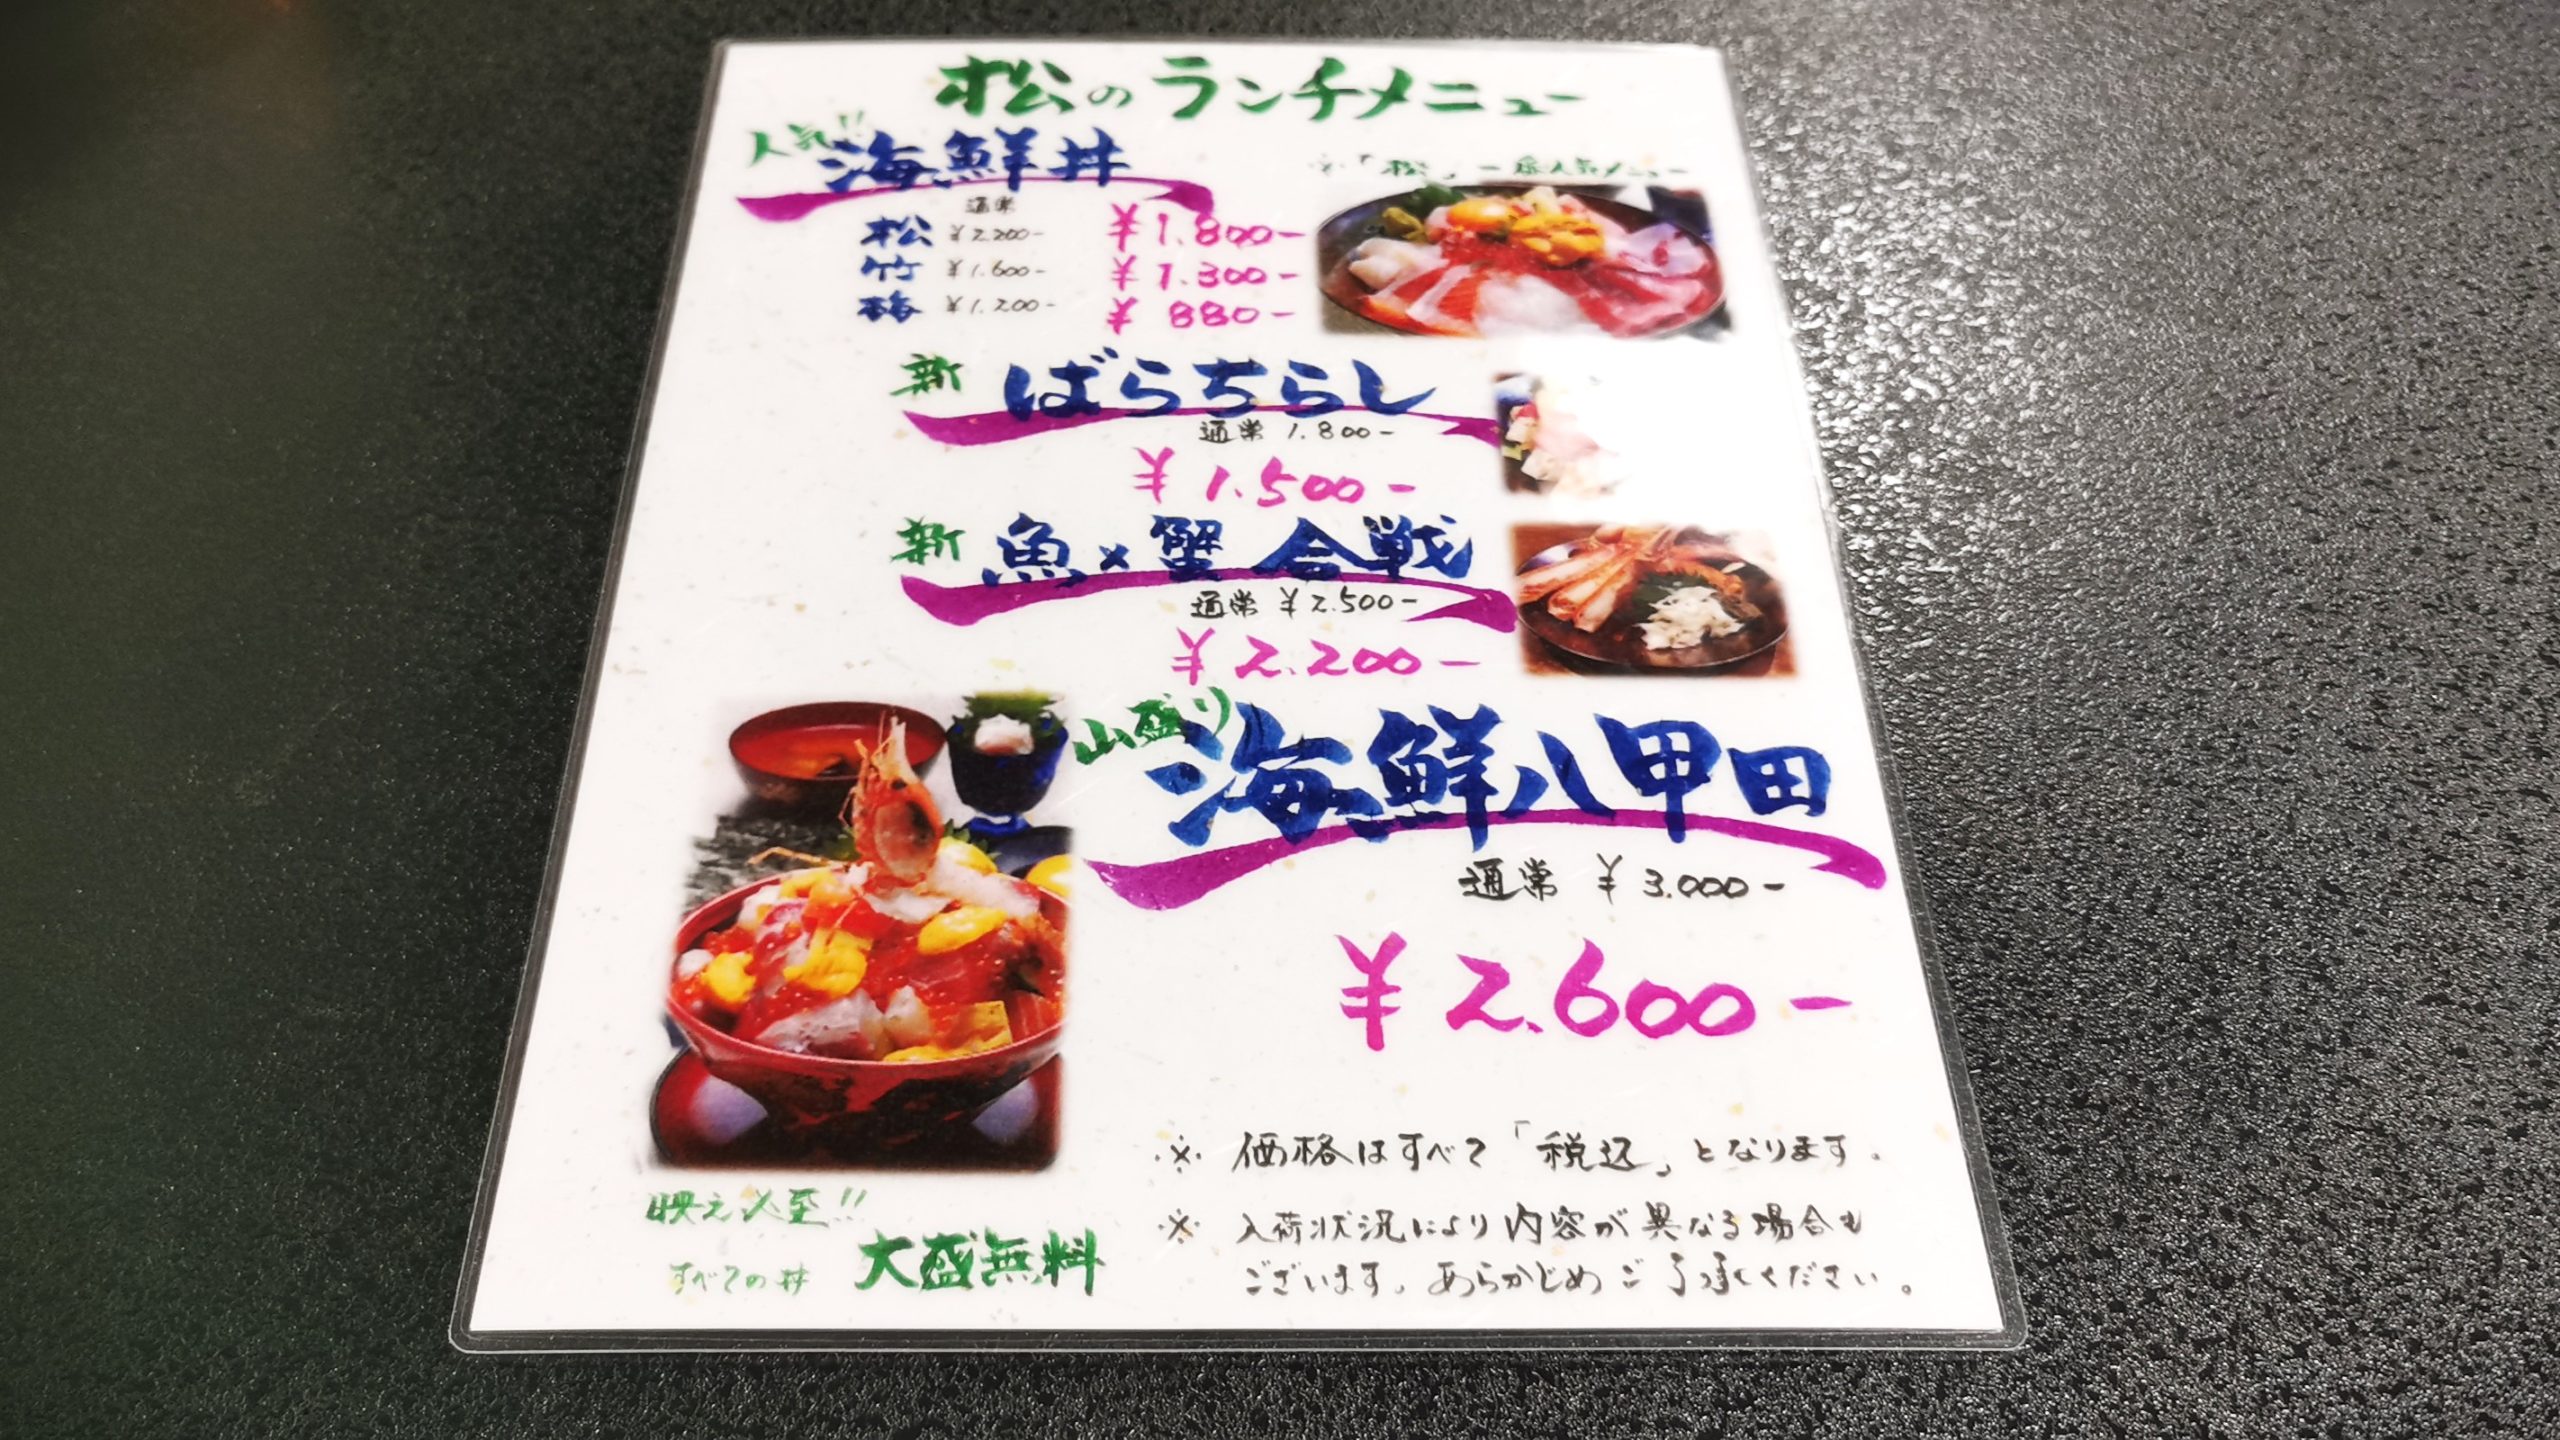 松のランチメニュー
人気!! 海鮮丼
※「松」一番人気メニュー
通常
松 ¥2.200- ¥1.800-
竹 ¥1.600- ¥1.300-
梅 ¥1.200- ¥880-
新 ばらちらし
通常 1.800-
¥1.500-
新 魚×蟹 合戦
通常 ¥2.500-
¥2.200-
山盛り 海鮮八甲田
通常 ¥3.000-
¥2.600-
※ 価格はすべて「税込」となります。
※ 入荷状況により内容が異なる場合も
ございます。あらかじめご了承ください。
映え必至!!
すべての丼 大盛無料